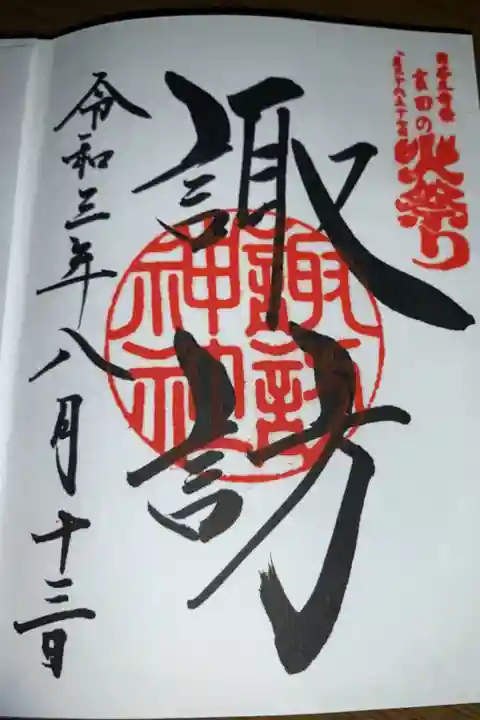 吉田の
火祭り
諏訪
諏訪
神社
令和三年八月十三日